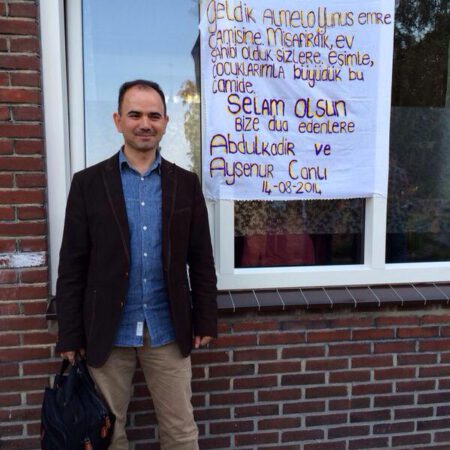 Geldik Almelo Yunus emre
Camisine Misafirdik, ev
sahibi olduk sizlere. eşimle,
çocuklarımla büyüdük bu
camide.
Selam Olsun
Bize dua edenlere
Abdulkadir ve
Ayşenur Canu
14-08-2014